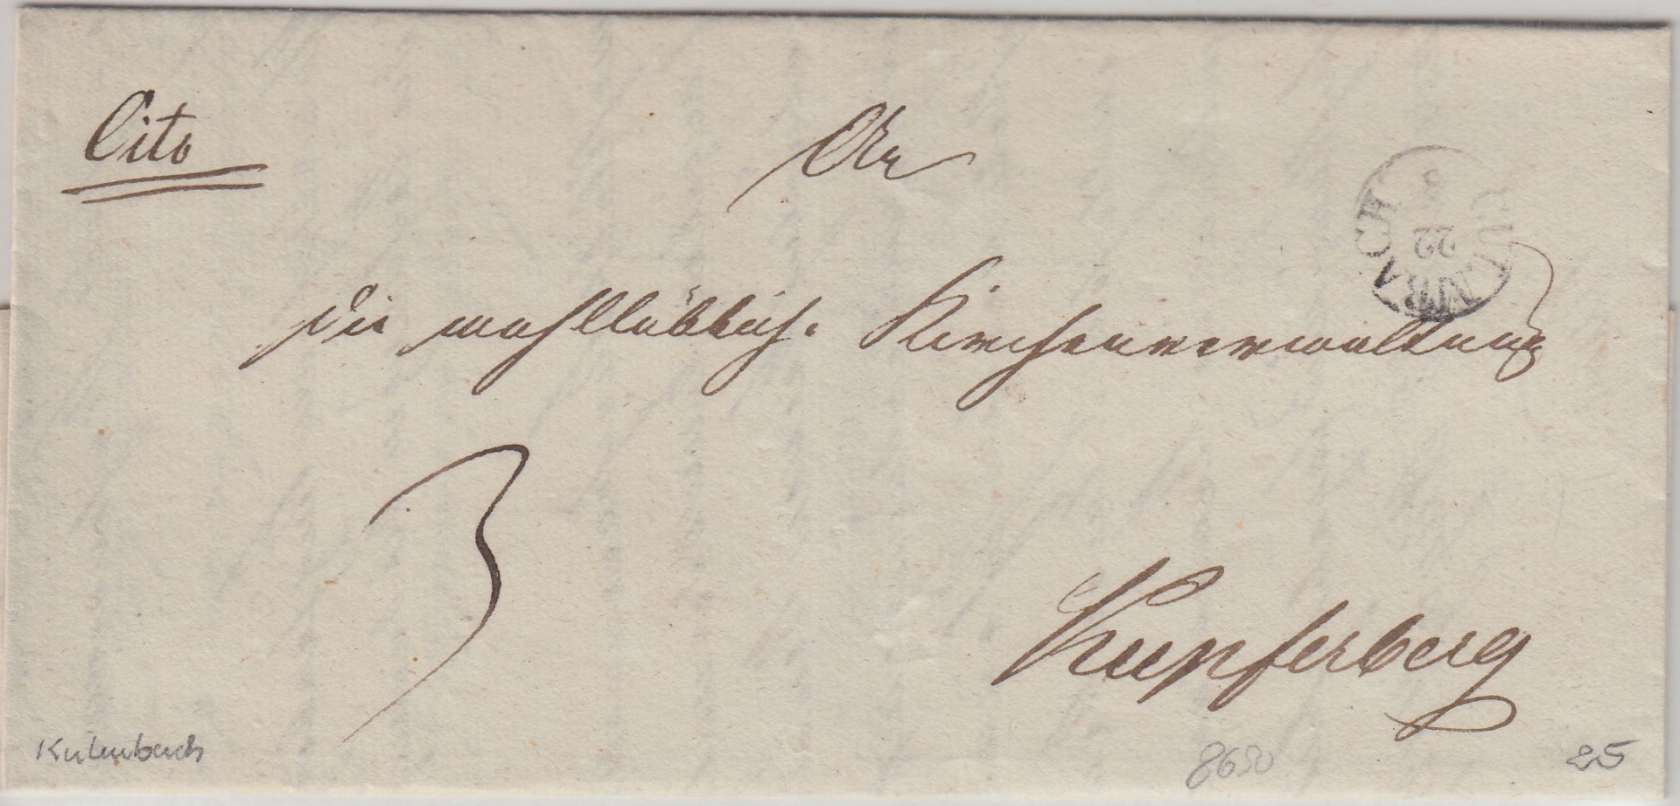 Cito
An
CULMBACH
22
3
die wohllöbliche Kirchenverwaltung
3
Kupferberg
Kulmbach
8650
25